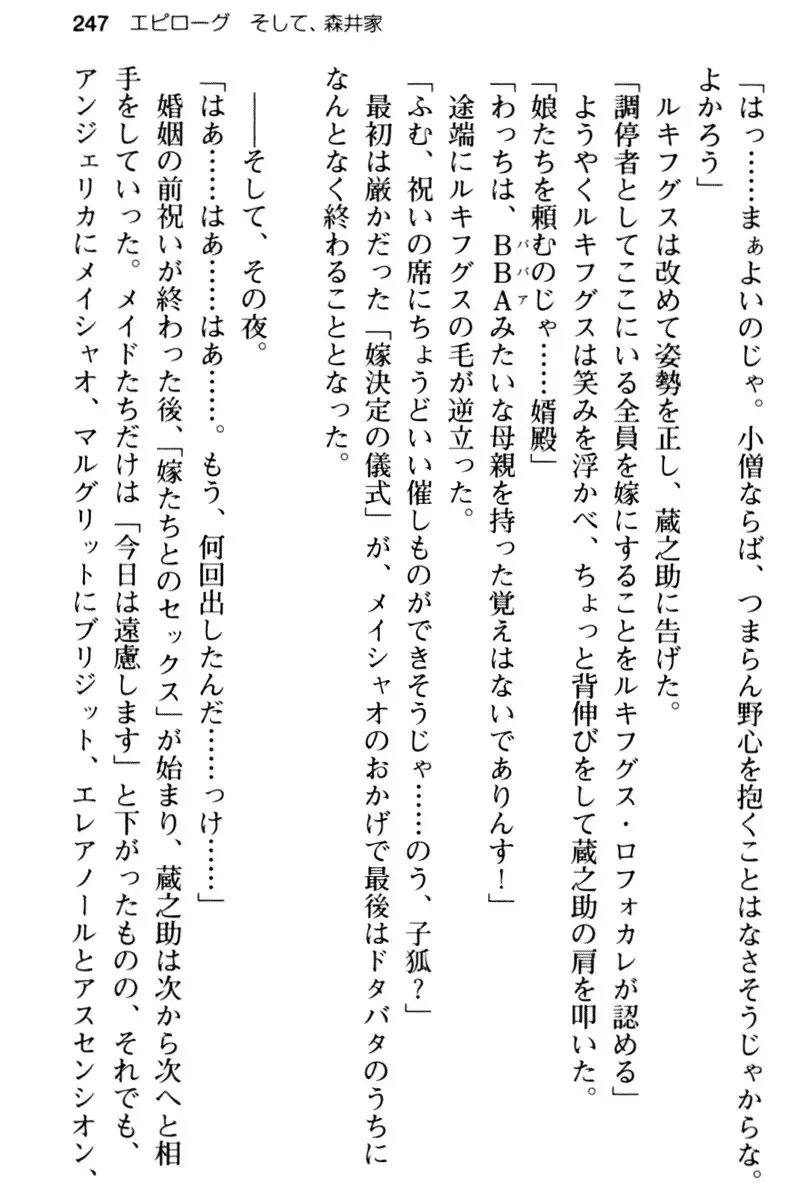 247 エピローグ そして、森井家
「はっ……まぁよいのじゃ。小僧ならば、つまらん野心を抱くことはなさそうじゃからな。
よかろう」
ルキフグスは改めて姿勢を正し、蔵之助に告げた。
「調停者としてここにいる全員を嫁にすることをルキフグス・ロフォカレが認める」
ようやくルキフグスは笑みを浮かべ、ちょっと背伸びをして蔵之助の肩を叩いた。
「娘たちを頼むのじゃ……婿殿」
「わっちは、BBAみたいな母親を持った覚えはないでありんす！」
途端にルキフグスの毛が逆立った。
「ふむ、祝いの席にちょうどいい催しものができそうじゃ……のう、子狐？」
最初は厳かだった「嫁決定の儀式」が、メイシャオのおかげで最後はドタバタのうちに
なんとなく終わることとなった。
――そして、その夜。
「はぁ……はぁ……はぁ……。もう、何回出したんだ……っけ……」
婚姻の前祝いが終わった後、「嫁たちとのセックス」が始まり、蔵之助は次から次へと相
手をしていった。メイドたちだけは「今日は遠慮します」と下がったものの、それでも、
アンジェリカにメイシャオ、マルグリットにブリジット、エレアノールとアスセンシオン、